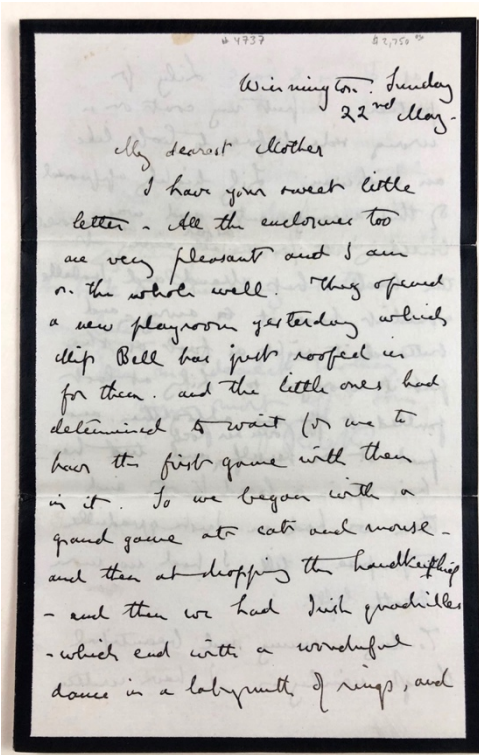 # 4737 $2,750
Winnington. Sunday
22nd May.
My dearest Mother
I have your sweet little
letter - All the enclosures too
are very pleasant and I am
on the whole well. They opened
a new playroom yesterday which
Miss Bell has just roofed in
for them. and the little ones had
determined to wait for me to
have the first game with them
in it. So we began with a
grand game at cat and mouse -
and then at dropping the handkerchief
- and then we had Irish quadrilles
- which end with a wonderful
dance in a labyrinth of rings, and